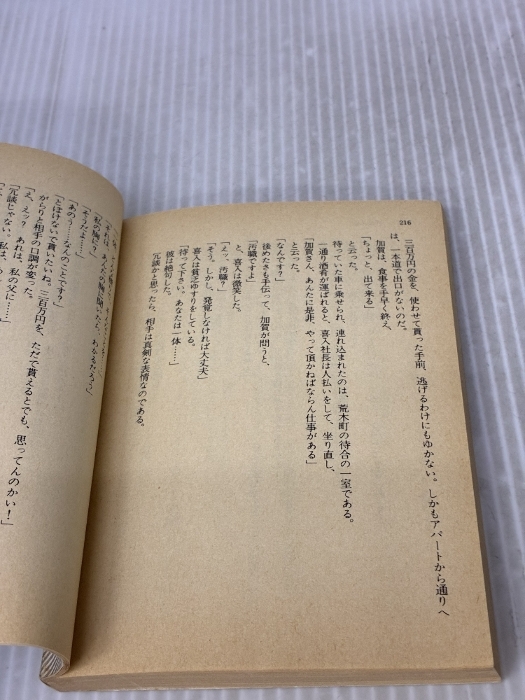 216
三百万円の金を、使わせて貰った手前、逃げるわけにもゆかない。しかもアパートから通りへ
は、一本道で出口がないのだ。
加賀は、食事を手早く終え、
「ちょっと、出て来る」
と云った。
待っていた車に乗せられ、連れ込まれたのは、荒木町の待合の一室である。
一通り酒肴が運ばれると、喜入社長は人払いをして、坐り直し、
「加賀さん、あんたに是非、やって頂かねばならん仕事がある」
と云った。
「なんです？」
後めたさも手伝って、加賀が問うと、
「汚職ですよ」
喜入は微笑した。
「えッ？　汚職？」
「そう。しかし、発覚しなければ大丈夫」
喜入は貧乏ゆすりをしている。
「待って下さい。あなたは一体……」
彼は絶句した。
冗談かと思ったら、相手は真剣な表情なのである。
わかるだろう」
「私の胸に？」
「そうだよ……」
「あのう……なんのことです？」
「とぼけないで貰いたいね。三百万円を、ただで貰えるとでも、思ってんのかい！」
がらりと相手の口調が変った。
「え、えッ？　あれは、私の父に……」
「冗談じゃない。私は、